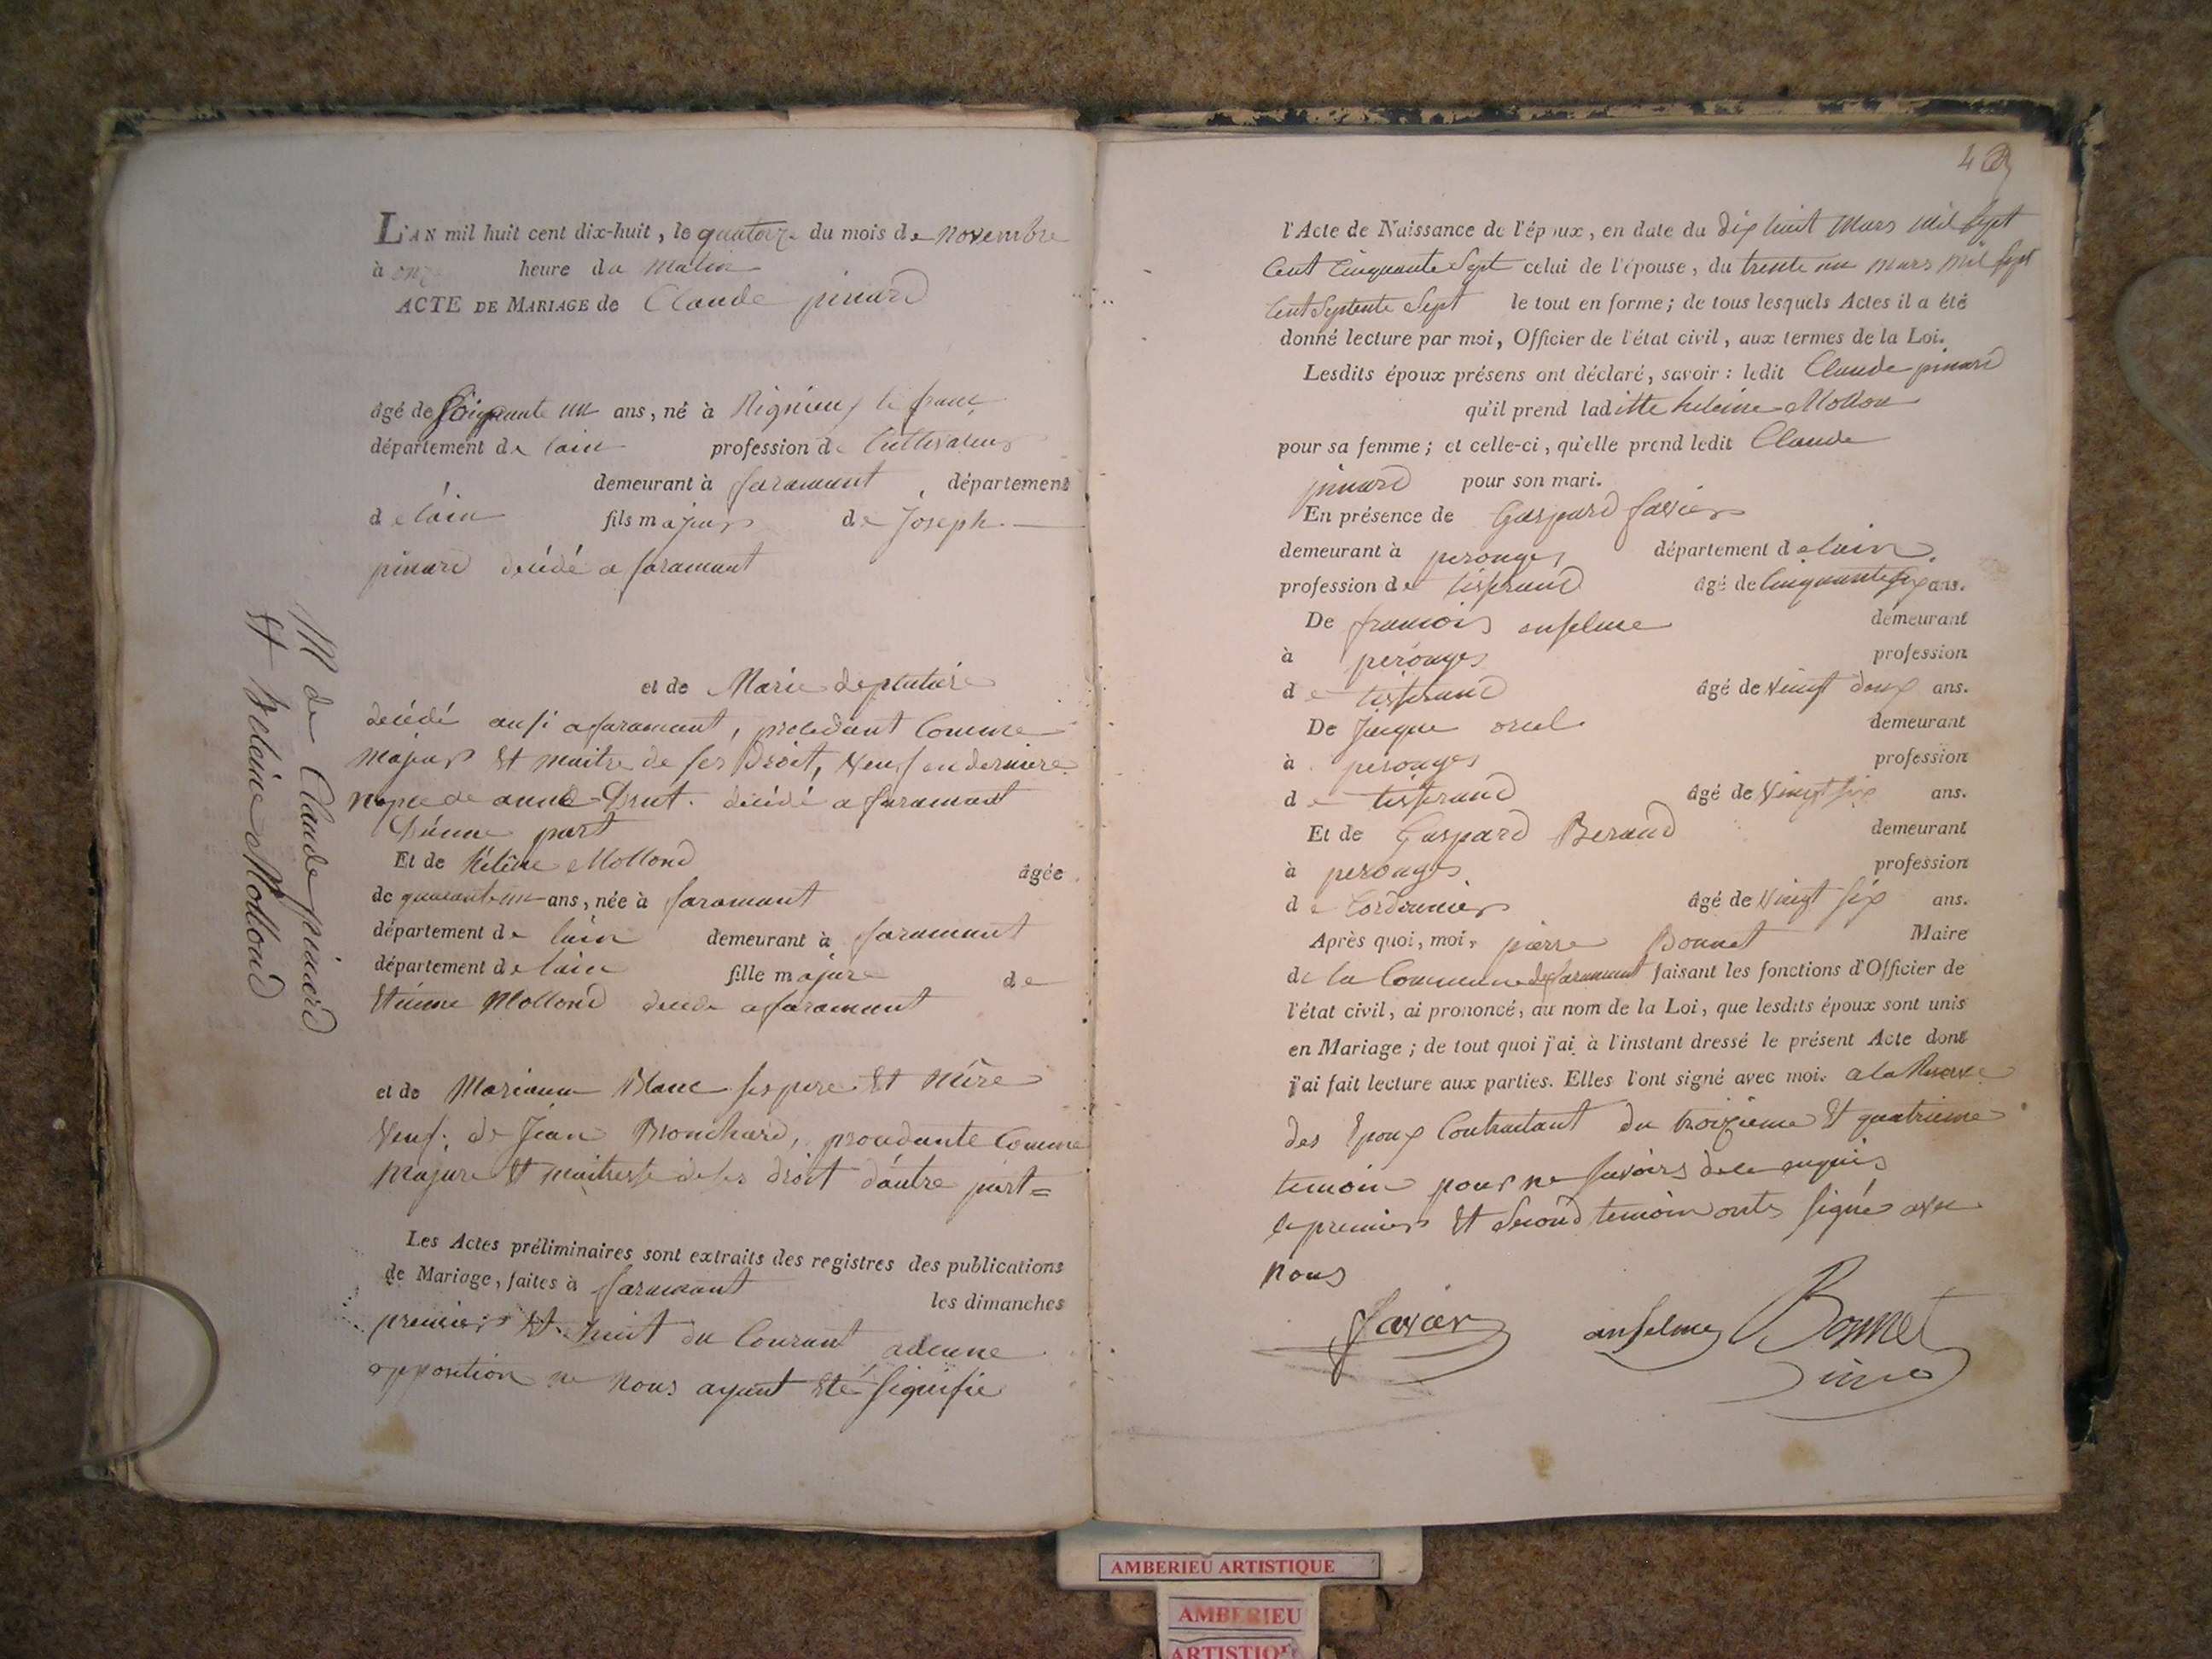 L'AN mil huit cent dix-huit, le quatorze du mois de novembre
à onze heure du matin
ACTE DE MARIAGE de Claude pinard
âgé de soixante un ans, né à Rignieux le franc
département de lain profession de Cultivateur
demeurant à faramant département
de láin fils majeur de Joseph
pinard décédé a faramant
et de Marie
décédé ausi a faramant, procedant Comme
majeur Et maitre de ses Droit, veuf en derniere
nopce de anne Drut. décédé a faramant
D'únne part
Et de héléne Mollond âgée
de quarante un ans, née à faramant
département de lain demeurant à faramant
département de lain fille majure de
Etienne Mollond décédé a faramant
et de Marianne Blanc ses pere Et Mère
Veuf. de Jean Bronchard, procdante Comme
majure Et maitresse de ses droit dáutre part=
Les Actes préliminaires sont extraits des registres des publications
de Mariage, faites à faramant les dimanches
premier Et huit du Courant aucune
opposition ne nous ayant Eté signifie
M de Claude pinard
Et heleine Mollond
l'Acte de Naissance de l'époux, en date du dix huit Mars mil sept
Cent Cinquante Sept celui de l'épouse, du trente un mars mil sept
Cent Septente Sept le tout en forme; de tous lesquels Actes il a été
donné lecture par moi, Officier de l'état civil, aux termes de la Loi.
Lesdits époux présens ont déclaré, savoir: ledit Claude pinard
qu'il prend laditte heleine Mollon
pour sa femme; et celle-ci, qu'elle prend ledit Claude
pinard pour son mari.
En présence de Gaspard favier
demeurant à perouges département de lain.
profession de tisserand âgé de Cinquante six ans.
De francois anselme demeurant
à perouges profession
de tisserand âgé de vingt doux ans.
De Jacque orsel demeurant
à perouges profession
de tisserand âgé de vingt six ans.
Et de Gaspard Beraud demeurant
à perouges profession
de Cordonnier âgé de vingt six ans.
Après quoi, moi, pierre Bonnet Maire
de la Commune de faramant faisant les fonctions d'Officier de
l'état civil, ai prononcé, au nom de la Loi, que lesdits époux sont unis
en Mariage; de tout quoi j'ai à l'instant dressé le présent Acte dont
j'ai fait lecture aux parties. Elles l'ont signé avec moi. a la Reserve
des Epoux Contractant du troizieme Et quatrieme
temoin pour ne savoirs de ce enquis
le premier Et Second temoin onts signés avec
nous
favier anselme Bonnet
AMBERIEU ARTISTIQUE
AMBERIEU
ARTISTIQUE